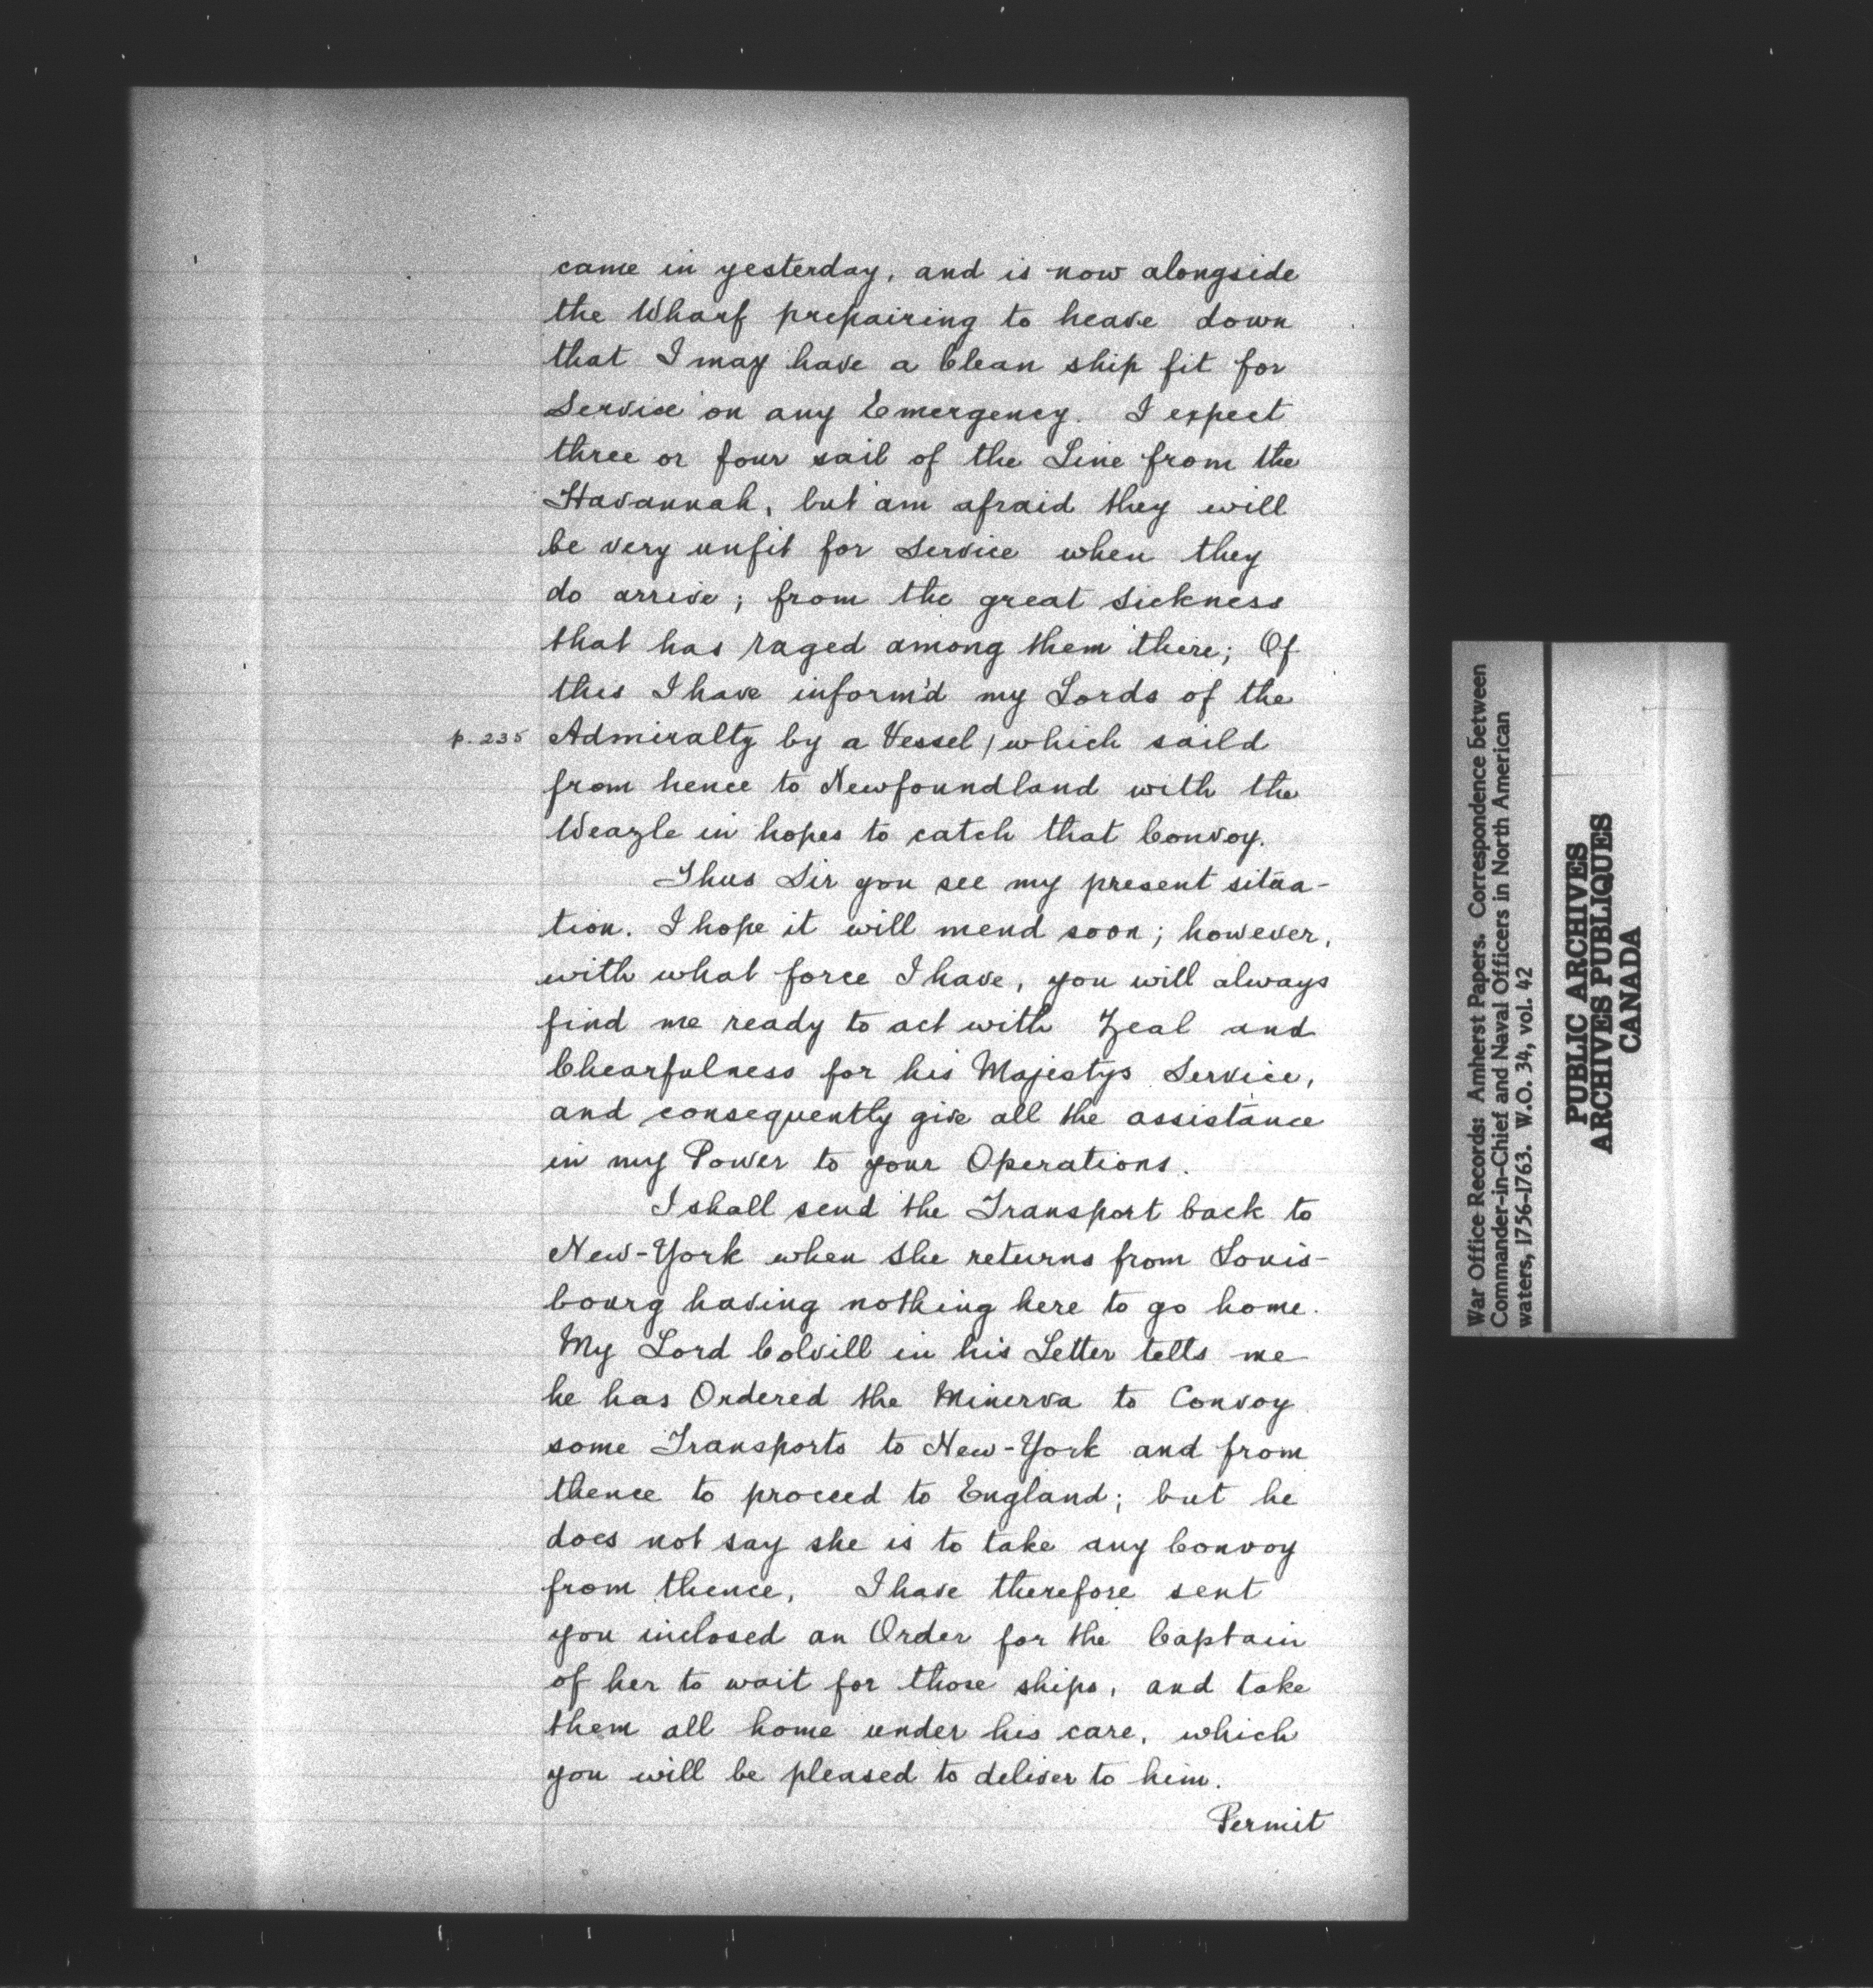 came in yesterday, and is now alongside
the Wharf prepairing to heave down
that I may have a Clean ship fit for
Service on any Emergency. I expect
three or four sail of the Line from the
Havannah, but am afraid they will
be very unfit for Service when they
do arrive; from the great Sickness
that has raged among them there; Of
this I have inform'd my Lords of the
p. 235 Admiralty by a Vessel / which saild
from hence to Newfoundland with the
Weazle in hopes to catch that Convoy.
Thus Sir you see my present situa-
tion. I hope it will mend soon; however,
with what force I have, you will always
find me ready to act with Zeal and
Chearfulness for his Majestys Service,
and consequently give all the assistance
in my Power to your Operations.
I shall send the Transport back to
New-York when She returns from Louis-
bourg having nothing here to go home.
My Lord Colvill in his Letter tells me
he has Ordered the Minerva to Convoy
some Transports to New-York and from
thence to proceed to England; but he
does not say she is to take any Convoy
from thence, I have therefore sent
you inclosed an Order for the Captain
of her to wait for those ships, and take
them all home under his care, which
you will be pleased to deliver to him.
Permit
War Office Records: Amherst Papers. Correspondence between
Commander-in-Chief and Naval Officers in North American
waters, 1756-1763. W.O. 34, vol. 42
PUBLIC ARCHIVES
ARCHIVES PUBLIQUES
CANADA